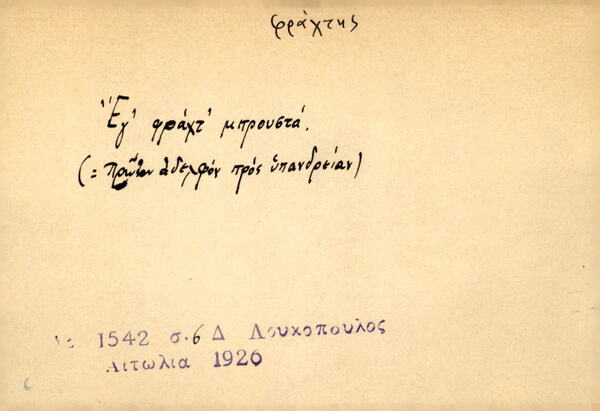 φράχτης
Ἔχ' φράχτ' μπρουστά.
(= πρῶτον ἀδελφόν πρός ὑπανδρείαν)
1542 σ.6 Δ Λουκοπουλος
Αιτωλια 1926
6